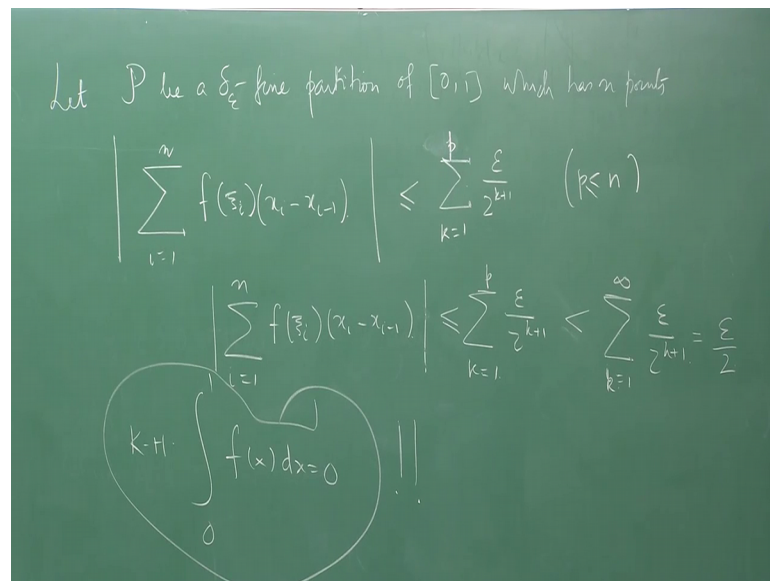 Let P be a δ_ε-fine partition of [0,1] which has n points
| ∑_{i=1}^{n} f(ξ_i)(x_i - x_{i-1}) | ≤ ∑_{k=1}^{p} ε/2^{k+1} (p<n)
| ∑_{i=1}^{n} f(ξ_i)(x_i - x_{i-1}) | ≤ ∑_{k=1}^{p} ε/2^{k+1} < ∑_{k=1}^{∞} ε/2^{k+1} = ε/2
K-H. ∫_0^1 f(x) dx = 0 !!